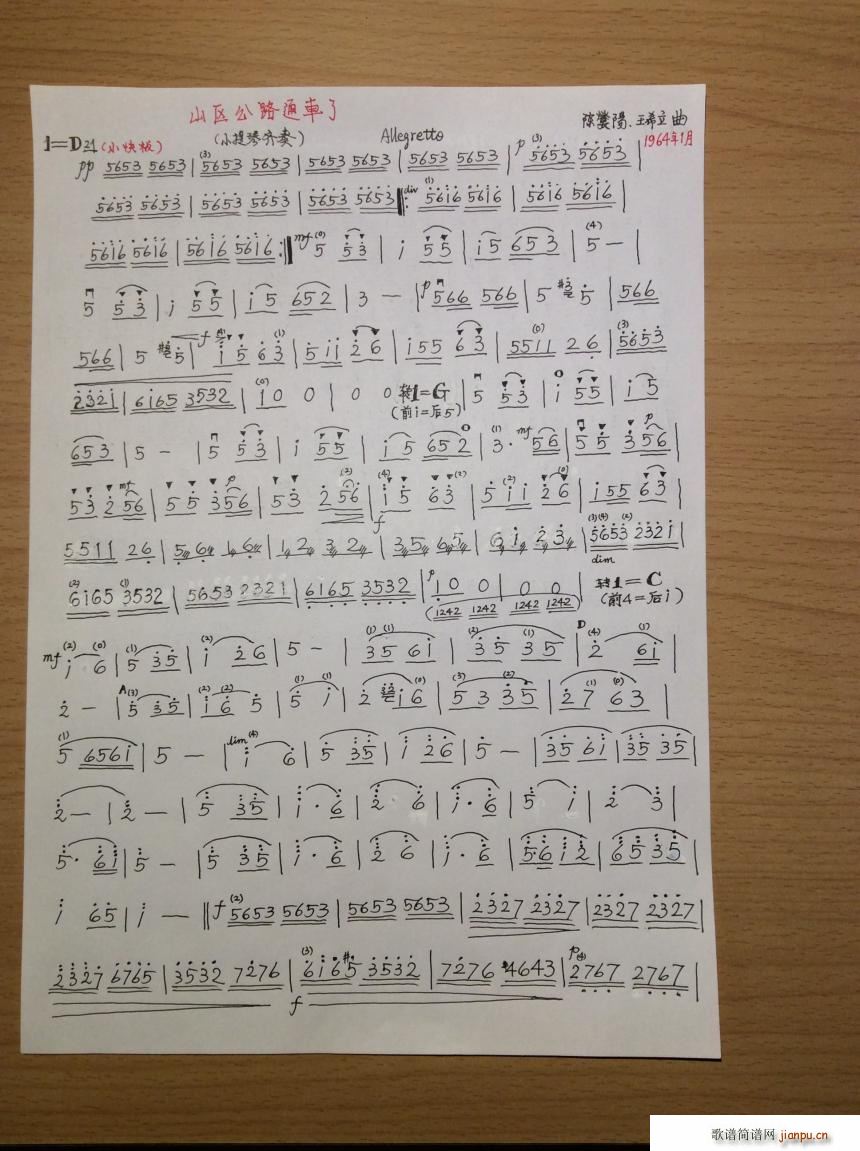 山区公路通車了
1=D 2/4 (小快板) (小提琴齐奏) Allegretto 陈 陽、王希立 曲
1964年1月
pp 5653 5653 | 5653 5653 | 5653 5653 | 5653 5653 | p 5653 5653 |
5653 5653 | 5653 5653 | 5653 5653 |: div 5616 5616 | 5616 5616 |
5616 5616 | 5616 5616 :| mf 5 53 | i 55 | i5 653 | 5 — |
5 53 | i 55 | i5 652 | 3 — | p 566 566 | 5 5 | 566
566 | 5 5 | f i5 63 | 5ii 26 | i55 63 | 5511 26 | 5653
232i | 6i65 3532 | 10 0 | 0 0 转1=G | 5 53 | i 55 | i5
(前i=后5)
653 | 5 — | 5 53 | i 55 | i5 652 | 3· mf 56 | 55 356 |
53 256 | 55 356 | 53 256 | i5 63 | 5ii 26 | i55 63 |
f
5511 26 | 56 16 | 12 32 | 35 65 | 6i 23 | 5653 232i |
dim
6i65 3532 | 5653 232i | 6165 3532 | p 10 0 | 0 0 转1=C
(1242 1242 1242 1242) (前4=后i)
mf i 6 | 5 35 | i 26 | 5 — | 35 6i | 35 35 | 2 6i |
2 — | 5 35 | i6 5 | 5 i | 2 i6 | 53 35 | 27 63 |
5 656i | 5 — | dim i 6 | 5 35 | i 26 | 5 — | 35 6i | 35 35 |
2 — | 2 — | 5 35 | i· 6 | 2 6 | i· 6 | 5 i | 2 3 |
5· 6i | 5 — | 5 35 | i· 6 | 2 6 | i· 6 | 5·6 i2 | 65 35 |
i 65 | i — || f 5653 5653 | 5653 5653 | 2327 2327 | 2327 2327 |
2327 6765 | 3532 7276 | 6i65 3532 | 7276 4643 | p 2767 2767 |
f
歌谱简谱网 jianpu.cn